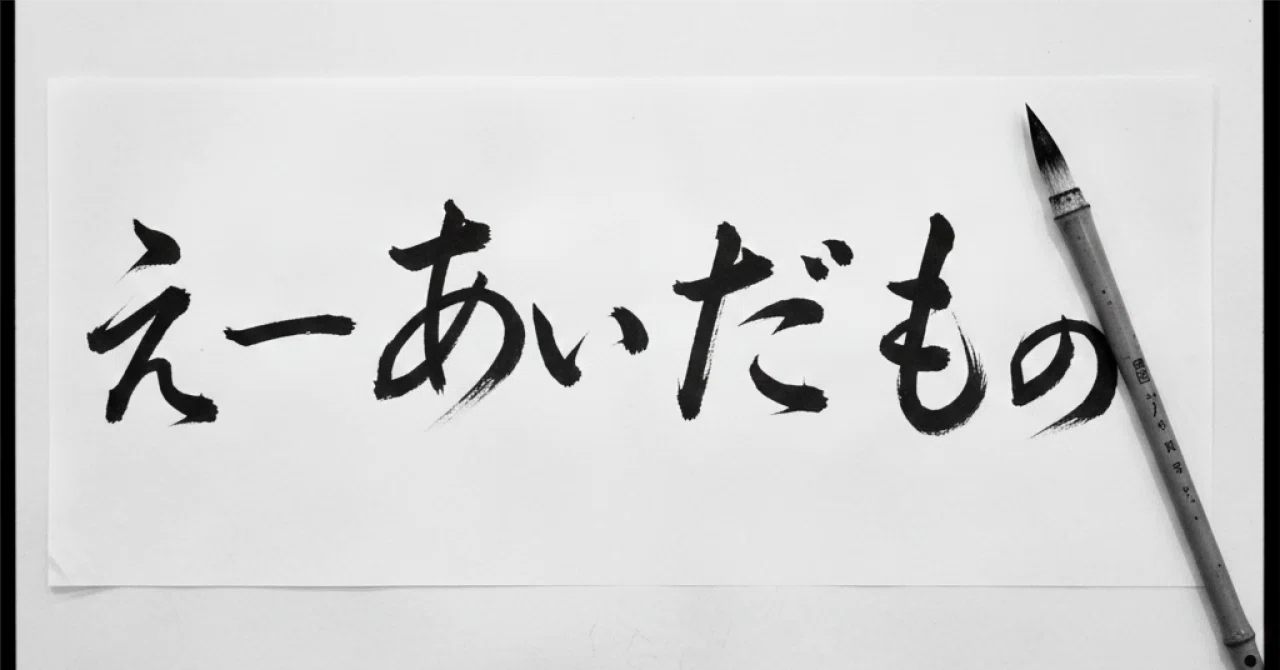 えーあいだもの